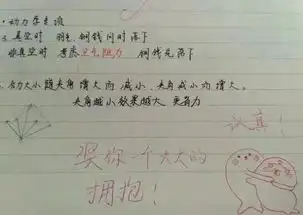 ·动力学主演
2. 真空时 羽毛、铜钱同时落下
非真空时 考虑空气阻力 铜钱先落
合力大小随夹角增大而减小、夹角减小而增大。
夹角越小效果越大 更省力
认真!
奖你一个大大的
拥抱!